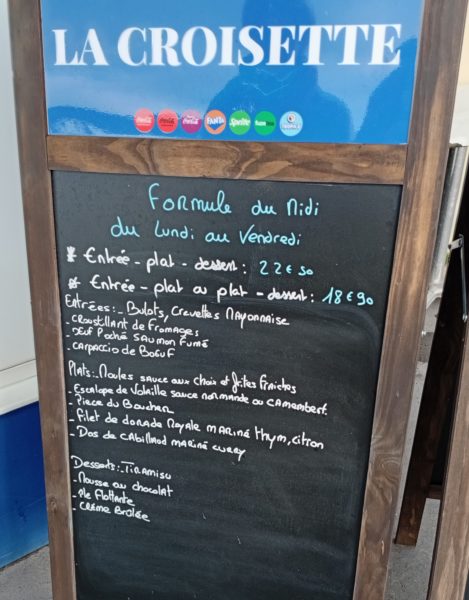 LA CROISETTE
FANTA Sprite
Formule du Midi
du Lundi au Vendredi
* Entrée - plat - dessert : 22€50
* Entrée - plat ou plat - dessert : 18€90
Entrées : - Bulots, Crevettes Mayonnaise
- Croustillant de fromages
- Oeuf Poché Saumon Fumé
- Carpaccio de Boeuf
Plats : - Moules sauce aux choix et frites fraiches
- Escalope de Volaille sauce normande ou camembert.
- Piece du Boucher
- Filet de dorade Royale mariné thym, citron
- Dos de Cabillaud mariné curry
Desserts : - Tiramisu
- Mousse au chocolat
- Ile flottante
- Crème Brûlée